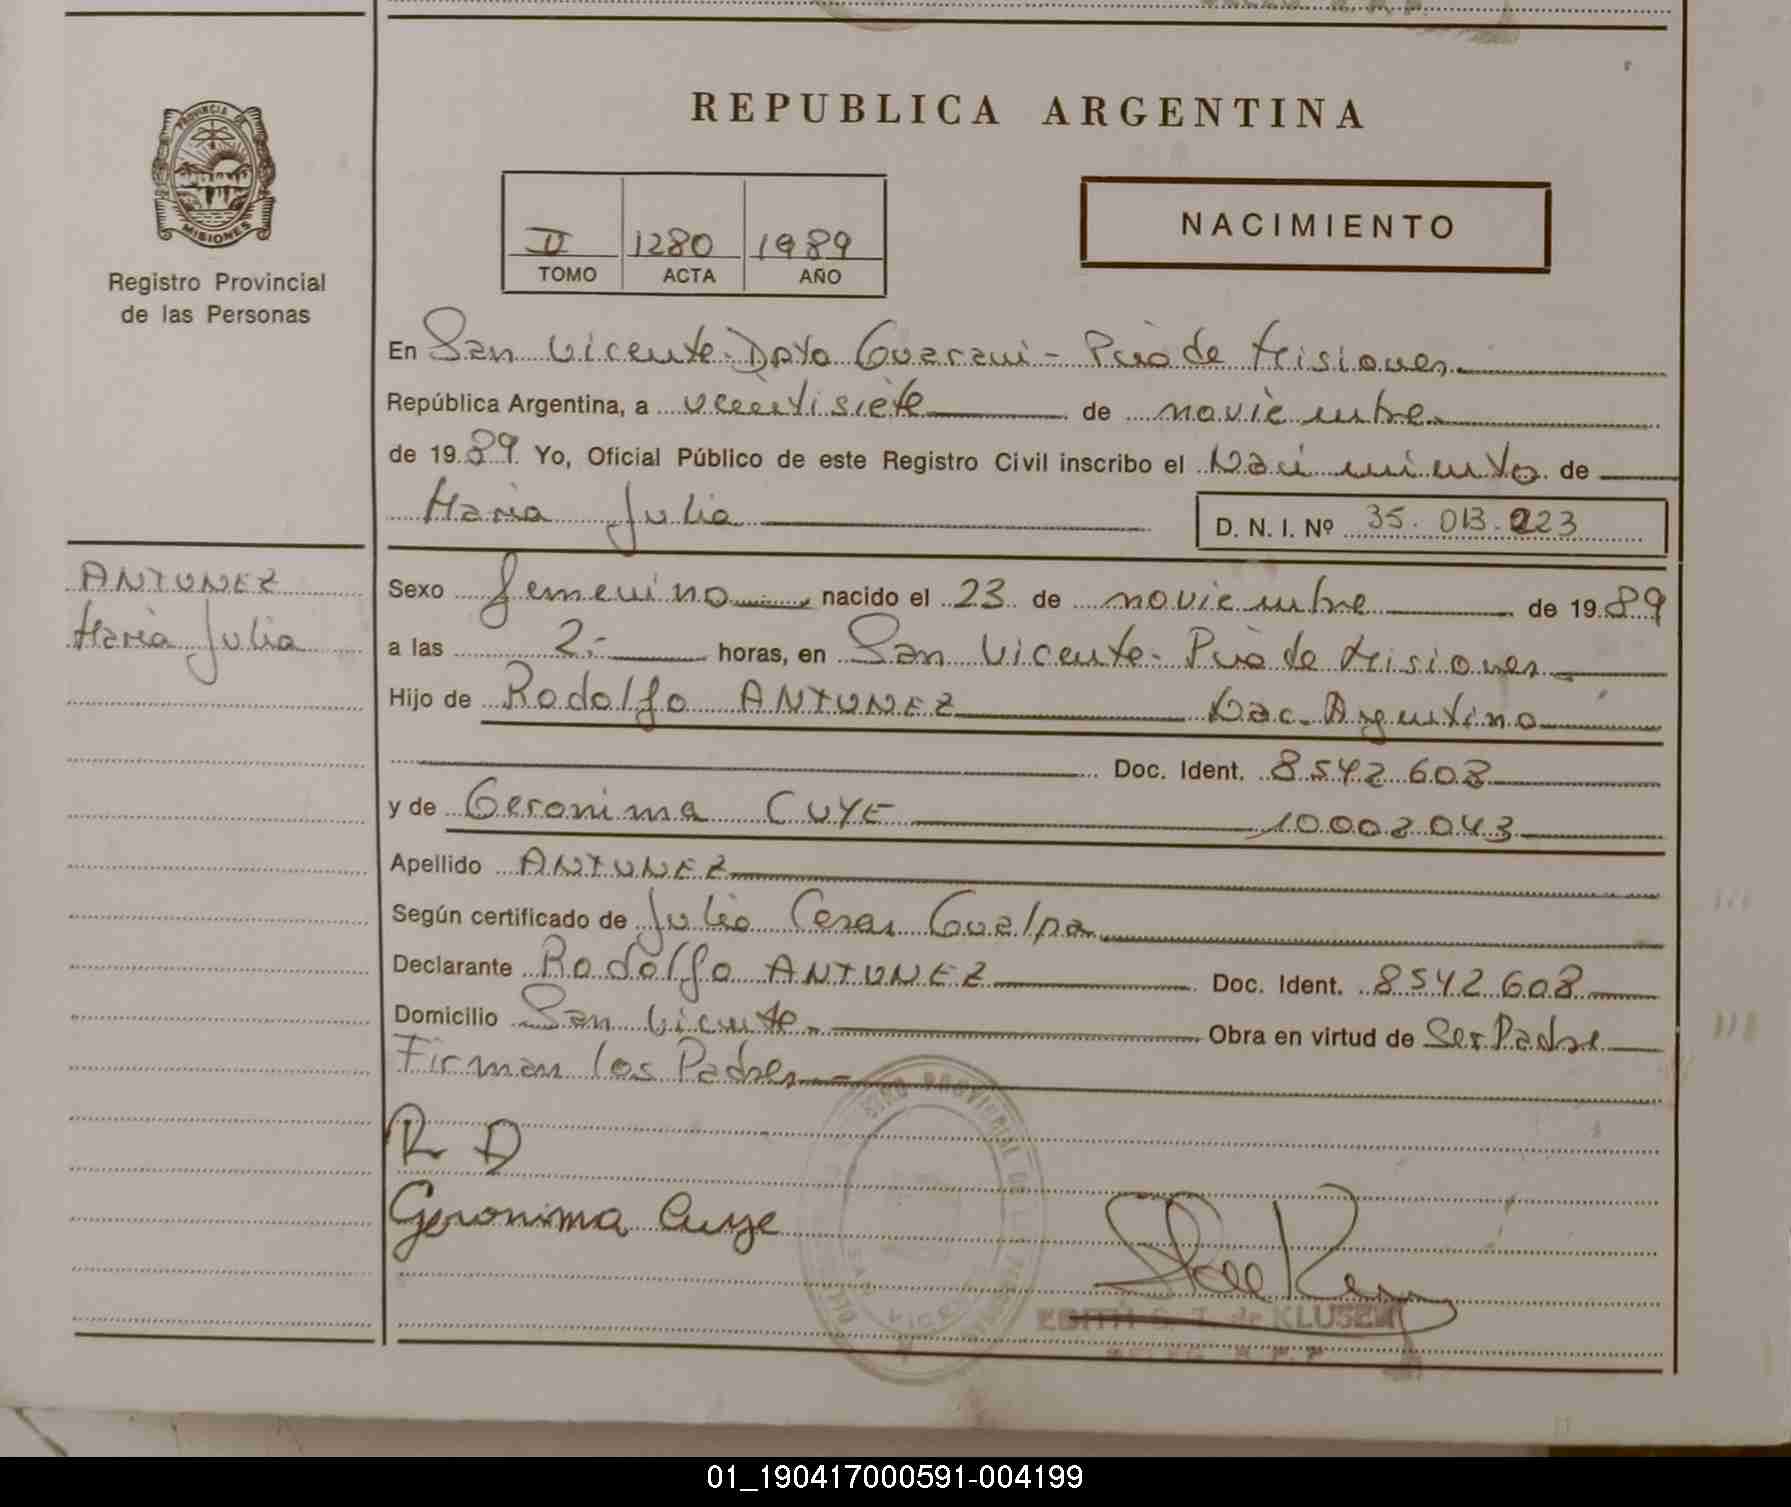 REPUBLICA ARGENTINA
PROVINCIA DE
MISIONES
Registro Provincial
de las Personas
II 1280 1989
TOMO ACTA AÑO
NACIMIENTO
En San Vicente Dpto Guarani - Pcia de Misiones
República Argentina, a veintisiete de noviembre
de 1989 Yo, Oficial Público de este Registro Civil inscribo el Nacimiento de
Maria Julia D. N. I. Nº 35.013.223
ANTUNEZ
Maria Julia
Sexo femenino nacido el 23 de noviembre de 1989
a las 2- horas, en San Vicente - Pcia de Misiones
Hijo de Rodolfo ANTUNEZ Nac. Argentino
Doc. Ident. 8542608
y de Geronima CUYE 10002043
Apellido ANTUNEZ
Según certificado de Julio Cesar Gualpa
Declarante Rodolfo ANTUNEZ Doc. Ident. 8542608
Domicilio San Vicente Obra en virtud de Ser Padre
Firman los Padres
R A
Geronima Cuye
EDITH G. T. de KLUSEN
01_190417000591-004199